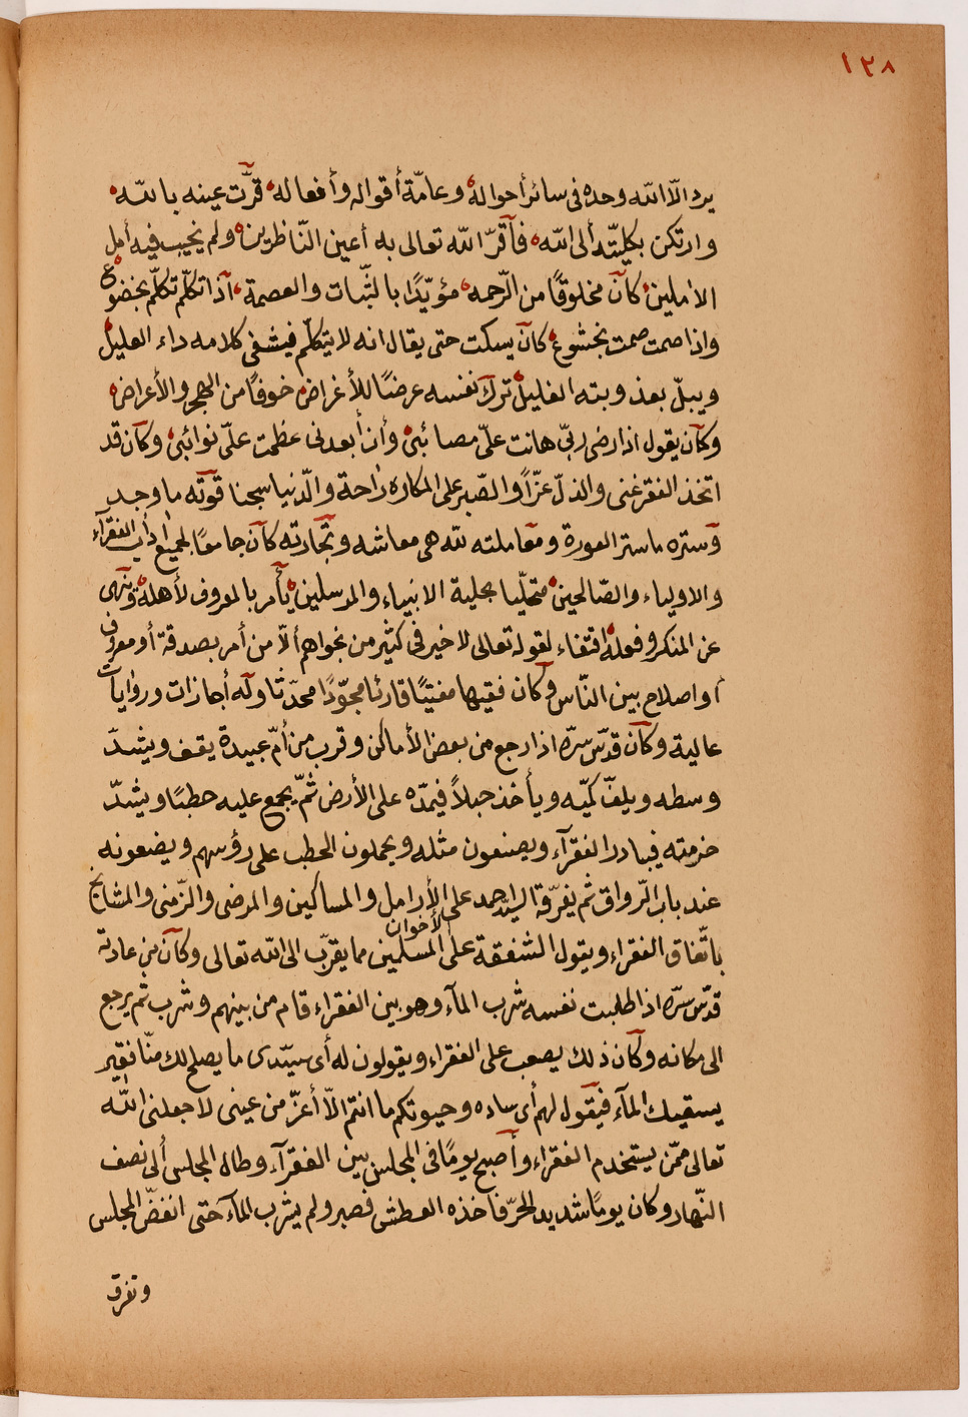 ١٢٨
يرد الّا الله وحده فى سائر أحواله وعامّة أقواله وأفعاله قرّت عينه بالله
وارتكن بكليّته ألى الله فآقرّ الله تعالى به أعين النّاظرين ولم يخيب فيه أمل
الاملين كان مخلوقًا من الرّحمه مؤيّدًا بالثّبات والعصمة آذا تكلّم تكلّم بخضوع
واذا صمت صمت بخشوع كان يسكت حتى يقال انه لا يتكلّم فيشفى كلامه داء العليل
ويبلّ بعذوبته الغليل ترك نفسه عرضًا للأغراض خوفًا من الهجر والأعراض
وكان يقول اذا رضى ربّى هانت علىّ مصائبى وأن أبعدنى عظمت علىّ نوائبى وكان قد
اتخذ الفقر غنى والذلّ عزّاً والصّبر على المكاره راحة والدّنيا سجنا قوته ما وجد
وستره ما ستر العورة ومعاملته لله هى معاشه وتجارته كان جامعًا لجميع اداب الفقرآء
والاولياء والصّالحين متحلّيا بحلية الانبياء والمرسلين يأمر بالمعروف لأهله وينهى
عن المنكر وفعله اقتفاء لقوله تعالى لا خير فى كثير من نجواهم ألاّ من أمر بصدقة أو معروف
او اصلاح بين النّاس وكان فقيها مفتيًا قارئا مجوّدًا محدّثا وله أجازات وروايات
عالية وكان قدّس سرّه اذا رجع من بعض الأماكن وقرب من أمّ عبيدة يقف ويشدّ
وسطه ويلفّ كمّيه ويأخذ حبلاً فيمدّه على الأرض ثمّ يجمع عليه حطبًا ويشدّ
حزمته فيبادر الفقرآء ويصنعون مثله ويحملون الحطب على رؤسهم ويضعونه
عند باب الرّواق ثم يفرّقه السيد احمد على الأرامل والمساكين والمرضى والزّمنى والمشايخ
باتّفاق الفقراء ويقول الشفقة على الأخوان المسلمين مما يقرّب الى الله تعالى وكان من عادته
قدّس سرّه اذا طلبت نفسه شرب المآء وهو بين الفقراء قام من بينهم وشرب ثم يرجع
الى مكانه وكان ذلك يصعب على الفقراء ويقولون له أى سيّدى ما يصلح لك منّا فقير
يسقيك المآء فيقول لهم أى ساده وحيوتكم ما انتم الاّ أعزّ من عينى لا جعلنى الله
تعالى ممّن يستخدم الفقراء وأصبح يومًا فى المجلس بين الفقرآء وطال المجلس ألى نصف
النّهار وكان يومًا شديد الحرّ فاخذه العطش فصبر ولم يشرب المآء حتى انفضّ المجلس
وتفرق